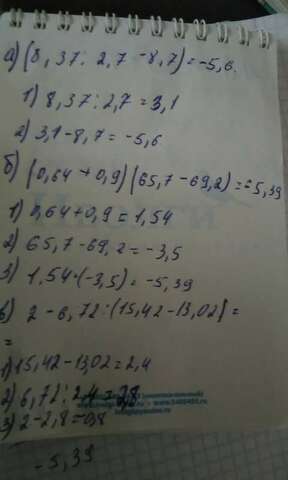 а) (8,37 : 2,7 - 8,7) = -5,6.
1) 8,37 : 2,7 = 3,1
2) 3,1 - 8,7 = -5,6
б) (0,64 + 0,9) (65,7 - 69,2) = -5,39
1) 0,64 + 0,9 = 1,54
2) 65,7 - 69,2 = -3,5
3) 1,54 · (-3,5) = -5,39
в) 2 - 6,72 : (15,42 - 13,02) =
=
1) 15,42 - 13,02 = 2,4
2) 6,72 : 2,4 = 2,8
3) 2 - 2,8 = 0,8
-5,39